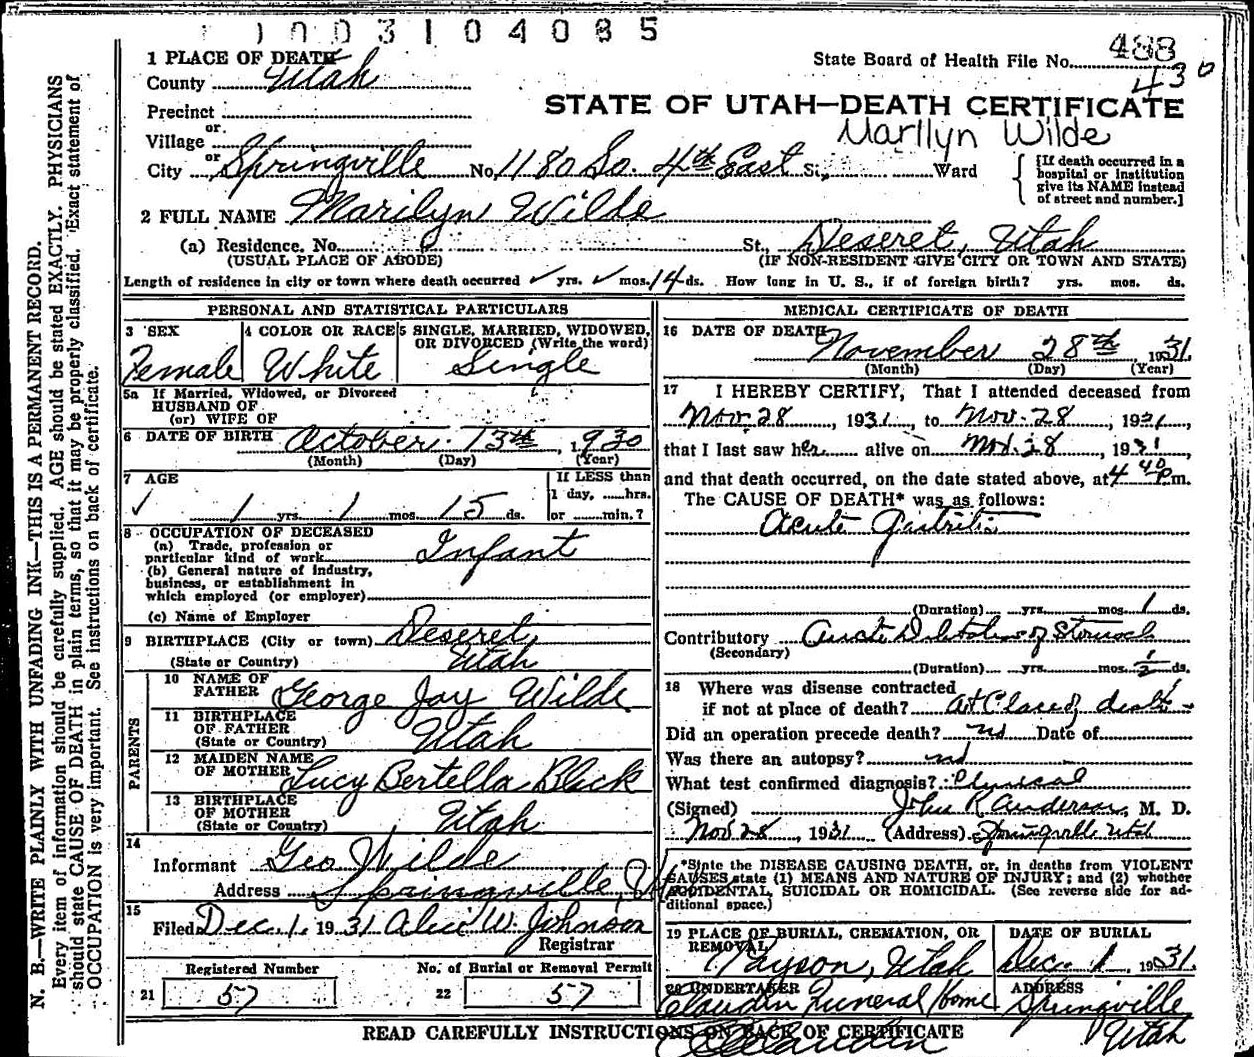 1003104085
State Board of Health File No. 488
430
1 PLACE OF DEATH
County Utah
Precinct
STATE OF UTAH—DEATH CERTIFICATE
or
Village
Marilyn Wilde
or
City Springville No. 1180 So. 4th East St., Ward
[If death occurred in a hospital or institution give its NAME instead of street and number.]
2 FULL NAME Marilyn Wilde
(a) Residence. No. St., Deseret, Utah
(USUAL PLACE OF ABODE) (IF NON-RESIDENT GIVE CITY OR TOWN AND STATE)
Length of residence in city or town where death occurred ✓ yrs. ✓ mos. 14 ds. How long in U. S., if of foreign birth? yrs. mos. ds.
PERSONAL AND STATISTICAL PARTICULARS
3 SEX
Female
4 COLOR OR RACE
White
5 SINGLE, MARRIED, WIDOWED,
OR DIVORCED (Write the word)
Single
5a If Married, Widowed, or Divorced
HUSBAND OF
(or) WIFE OF
6 DATE OF BIRTH October 13th, 1930
(Month) (Day) (Year)
7 AGE
✓ 1 yrs. 1 mos. 15 ds.
If LESS than
1 day, ......hrs.
or ......min.?
8 OCCUPATION OF DECEASED
(a) Trade, profession or
particular kind of work Infant
(b) General nature of industry,
business, or establishment in
which employed (or employer)
(c) Name of Employer
9 BIRTHPLACE (City or town) Deseret,
(State or Country) Utah
PARENTS
10 NAME OF
FATHER George Jay Wilde
11 BIRTHPLACE
OF FATHER
(State or Country) Utah
12 MAIDEN NAME
OF MOTHER Lucy Bertella Black
13 BIRTHPLACE
OF MOTHER
(State or Country) Utah
14
Informant Geo Wilde
Address Springville, U
15
Filed Dec. 1, 1931 Alice W. Johnson
Registrar
Registered Number
21 57
No. of Burial or Removal Permit
22 57
MEDICAL CERTIFICATE OF DEATH
16 DATE OF DEATH
November 28th, 1931.
(Month) (Day) (Year)
17 I HEREBY CERTIFY, That I attended deceased from
Nov. 28, 1931, to Nov. 28, 1931,
that I last saw her alive on Nov. 28, 1931
and that death occurred, on the date stated above, at 4 40 P.m.
The CAUSE OF DEATH* was as follows:
Acute Gastritis
(Duration) yrs. mos. 1 ds.
Contributory Acute Dilatation of Stomach
(Secondary)
(Duration) yrs. mos. 1/2 ds.
18 Where was disease contracted
if not at place of death? At Place of death
Did an operation precede death? no Date of
Was there an autopsy? no
What test confirmed diagnosis? Clinical
(Signed) John R Anderson, M. D.
Nov 28, 1931 (Address) Springville Utah
*State the DISEASE CAUSING DEATH, or, in deaths from VIOLENT
CAUSES state (1) MEANS AND NATURE OF INJURY; and (2) whether
ACCIDENTAL, SUICIDAL OR HOMICIDAL. (See reverse side for ad-
ditional space.)
19 PLACE OF BURIAL, CREMATION, OR
REMOVAL
Payson, Utah
DATE OF BURIAL
Dec. 1, 1931.
20 UNDERTAKER
Claudin Funeral Home
ADDRESS
Springville
Utah
READ CAREFULLY INSTRUCTIONS ON BACK OF CERTIFICATE
Claudin
N. B.—WRITE PLAINLY WITH UNFADING INK—THIS IS A PERMANENT RECORD.
Every item of information should be carefully supplied. AGE should be stated EXACTLY. PHYSICIANS
should state CAUSE OF DEATH in plain terms, so that it may be properly classified. Exact statement of
OCCUPATION is very important. See instructions on back of certificate.